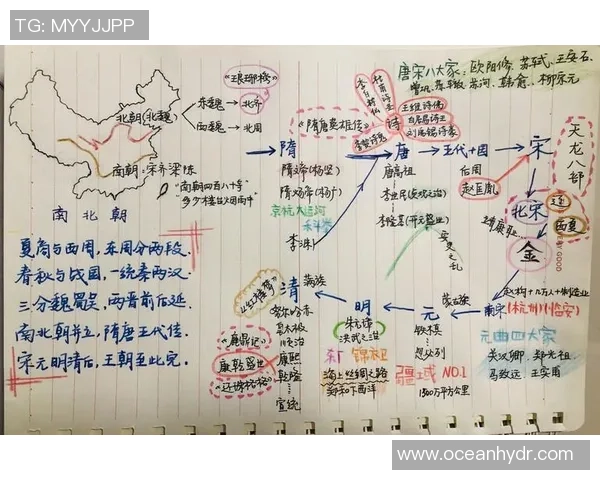 TG: MYYJJPP
唐宋八大家：欧阳修、苏轼、王安石、
曾巩、苏辙、苏洵、韩愈、柳宗元
《琅琊榜》
东魏 → 北齐
北朝（北魏）
西魏 → 北周
南朝：宋齐梁陈
"南朝四百八十寺
多少楼台烟雨中"
南北朝
夏商与西周，东周分两段，
春秋与战国，一统秦两汉，
三分魏蜀吴，两晋前后延，
南北朝并立，隋唐五代传，
宋元明清后，王朝至此完。
《隋唐英雄传》
诗
王维诗佛
白居易诗王
刘禹锡诗豪
隋
隋文帝（杨坚）
隋炀帝（杨广）
京杭大运河
科举
李渊
唐
唐高祖
李世民（贞观之治）
李隆基（开元盛世）
安史之乱
五代十国
后周
赵匡胤
宋
天龙八部
北宋
辽
西夏
靖康耻
金
南宋（杭州 临安）
元曲四大家
关汉卿、郑光祖、
马致远、王实甫
元
蒙古族
铁木真
忽必烈
疆域 NO.1
1500万平方公里
明
朱元璋
洪武之治
东厂 锦衣卫
海上丝绸之路
郑和下西洋
清
满族
努尔哈赤
皇太极
顺治
康熙
乾隆
宣统
《鹿鼎记》
康乾盛世
《还珠格格》
www.oceanhydr.com